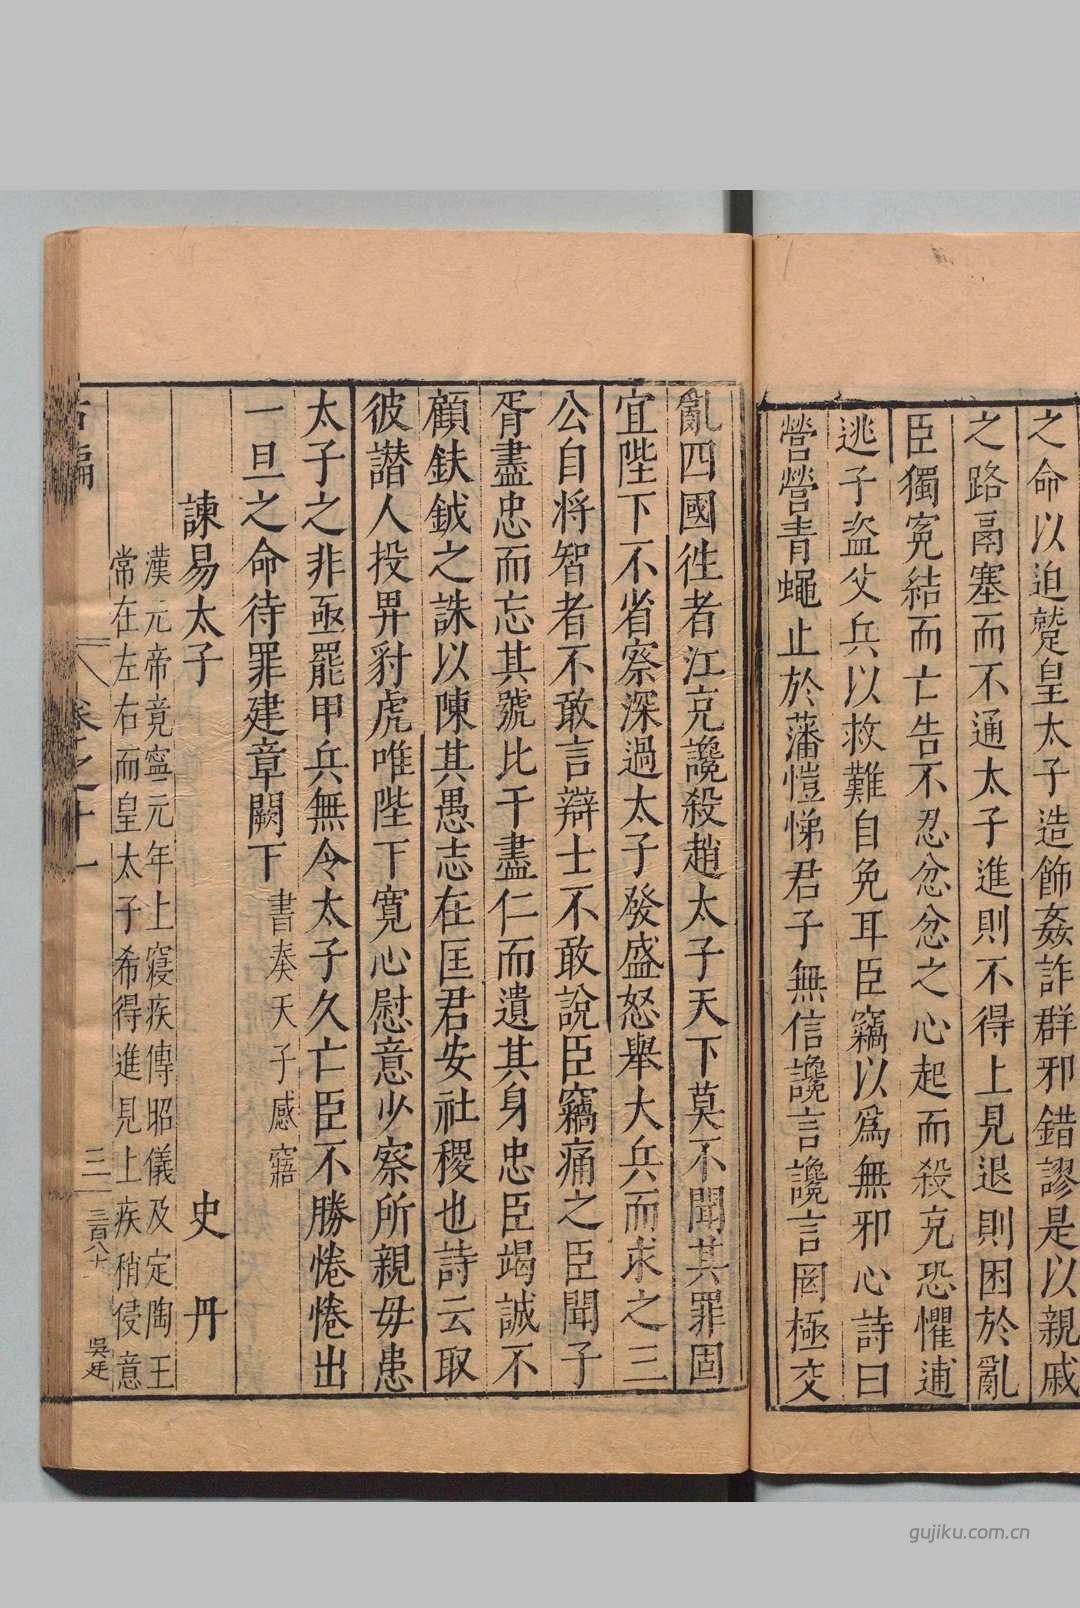 之命以迫蹵皇太子造飾姦詐群邪錯謬是以親戚
之路鬲塞而不通太子進則不得上見退則困於亂
臣獨冤結而亡告不忍忿忿之心起而殺充恐懼逋
逃子盗父兵以救難自免耳臣竊以爲無邪心詩曰
營營青蠅止於藩愷悌君子無信讒言讒言罔極交
亂四國徃者江充讒殺趙太子天下莫不聞其罪固
宜陛下不省察深過太子發盛怒舉大兵而求之三
公自將智者不敢言辯士不敢說臣竊痛之臣聞子
胥盡忠而忘其號比干盡仁而遺其身忠臣竭誠不
顧鈇鉞之誅以陳其愚志在匡君安社稷也詩云取
彼譖人投畀豺虎唯陛下寛心慰意少察所親毋患
太子之非亟罷甲兵無令太子久亡臣不勝惓惓出
一旦之命待罪建章闕下書奏天子感寤
諫易太子 史丹
漢元帝竟寧元年上寢疾傳昭儀及定陶王
常在左右而皇太子希得進見上疾稍侵意
卷之十一
三
三百八十
吳廷
gujiku.com.cn